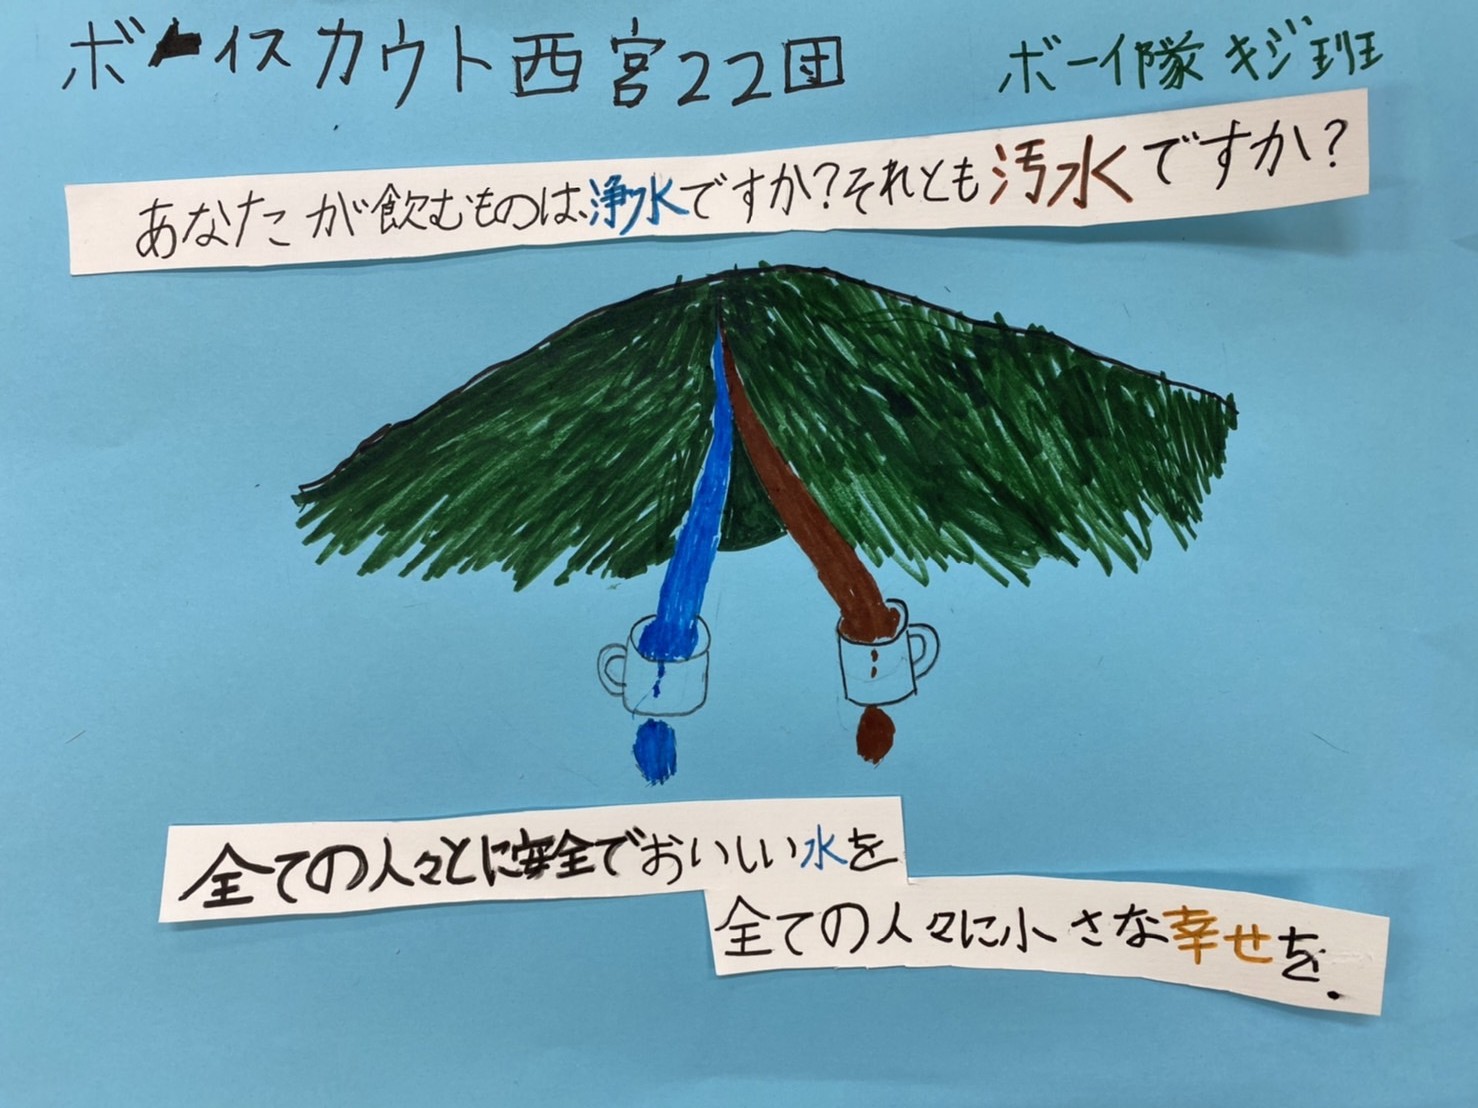 ボーイスカウト西宮22団
ボーイ隊 キジ班
あなたが飲むものは、浄水ですか?それとも汚水ですか?
全ての人々とに安全でおいしい水を
全ての人々に小さな幸せを.